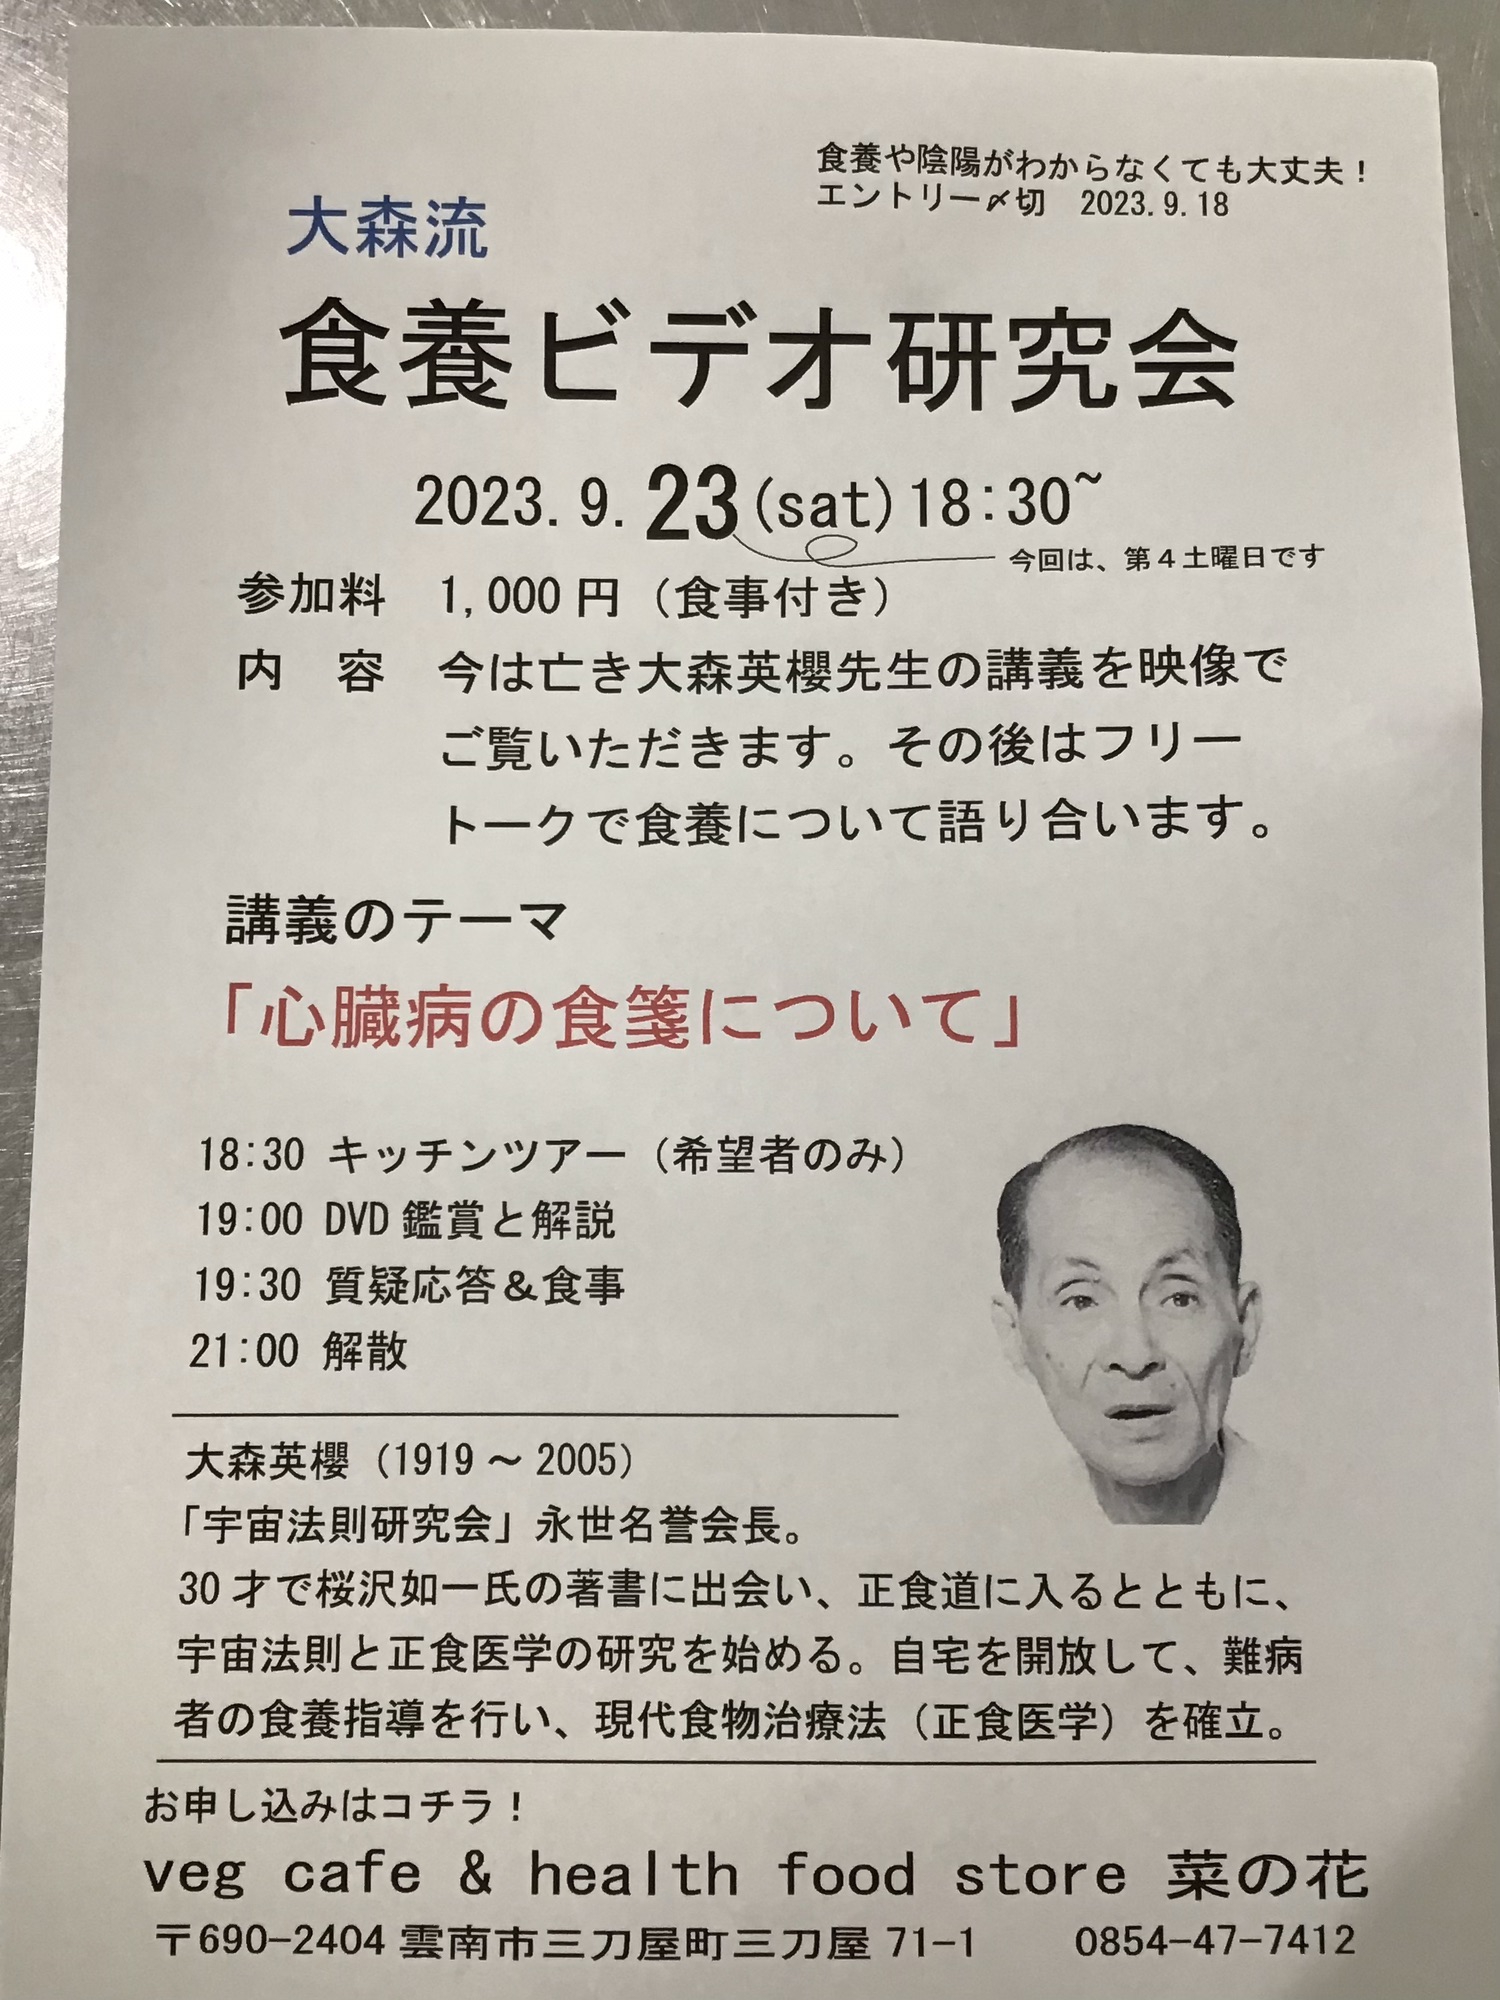 食養や陰陽がわからなくても大丈夫！
エントリー〆切　2023.9.18
大森流
食養ビデオ研究会
2023.9.23(sat)18:30~
今回は、第４土曜日です
参加料　1,000円（食事付き）
内　容　今は亡き大森英櫻先生の講義を映像で
ご覧いただきます。その後はフリー
トークで食養について語り合います。
講義のテーマ
「心臓病の食箋について」
18:30 キッチンツアー（希望者のみ）
19:00 DVD鑑賞と解説
19:30 質疑応答＆食事
21:00 解散
大森英櫻（1919～2005）
「宇宙法則研究会」永世名誉会長。
30才で桜沢如一氏の著書に出会い、正食道に入るとともに、
宇宙法則と正食医学の研究を始める。自宅を開放して、難病
者の食養指導を行い、現代食物治療法（正食医学）を確立。
お申し込みはコチラ！
veg cafe & health food store 菜の花
〒690-2404 雲南市三刀屋町三刀屋 71-1　0854-47-7412